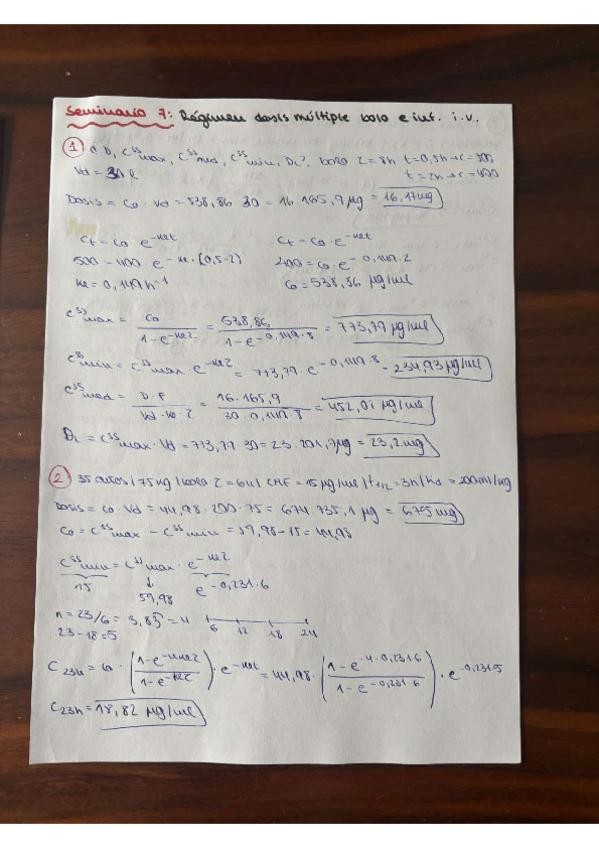 Seminario 7: Régimen dosis múltiple bolo e inf. i.v.
1 ¿ D, C^ss max, C^ss med, C^ss min, DL?, bolo τ = 8h t=0,5h→C=500
Vd = 30 l t=2h→C=400
Dosis = C0 · Vd = 538,86 · 30 = 16.165,9 μg = 16,17 mg
Ct = C0 · e^-ket Ct = C0 · e^-ket
500 = 400 · e^-ke·(0,5-2) 400 = C0 · e^-0,149·2
ke = 0,149 h^-1 C0 = 538,86 μg/ml
C^ss max = C0 / 1-e^-keτ = 538,86 / 1-e^-0,149·8 = 773,79 μg/ml
C^ss min = C^ss max · e^-keτ = 773,79 · e^-0,149·8 = 234,93 μg/ml
C^ss med = D·F / Vd·ke·τ = 16.165,9 / 30·0,149·8 = 452,01 μg/ml
DL = C^ss max · Vd = 773,79 · 30 = 23.201,7 μg = 23,2 mg
2 35 años / 75 kg / bolo τ = 6h / CME = 15 μg/ml / t1/2 = 3h / Vd = 200ml/kg
Dosis = C0 · Vd = 44,98 · 200 · 75 = 674.735,1 μg = 675 mg
C0 = C^ss max - C^ss min = 59,98 - 15 = 44,98
C^ss min = C^ss max · e^-keτ
15 59,98 e^-0,231·6
n = 23/6 = 3,83 = 4 6 12 18 24
23-18=5
C23h = C0 · (1-e^-nkeτ / 1-e^-keτ) · e^-ket = 44,98 · (1-e^-4·0,231·6 / 1-e^-0,231·6) · e^-0,231·5
C23h = 18,82 μg/ml